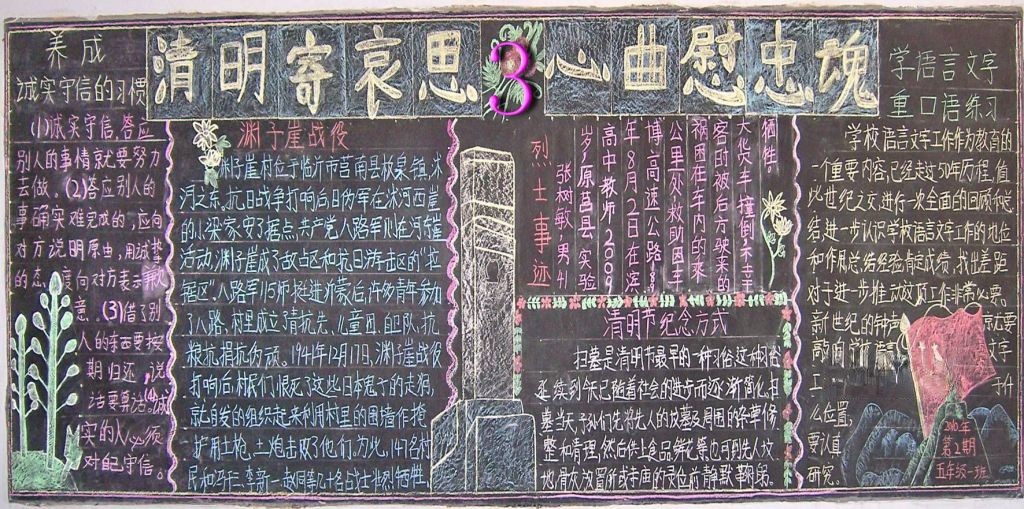 清明寄哀思 3 心曲慰忠魂
养成
诚实守信的习惯
(1)诚实守信,答应
别人的事情就要努力
去做。(2)答应别人的
事确实难完成的,应向
对方说明原由,用诚挚
的态度向对方表示歉
意。(3)借了别
人的东西要按
期归还,说
话要算话。(4)诚
实的人必须
对自己守信。
渊子崖战役
渊子崖村位于临沂市莒南县板泉镇,沭
河之东,抗日战争打响后日伪军在沭河西崖
的小梁家安了据点,共产党八路军则在河东崖
活动,渊子崖成了敌占区和抗日游击区的“拉
锯区”。八路军115师挺进沂蒙后,许多青年参加
了八路,村里成立青抗先、儿童团、自卫队,抗
粮抗捐抗伪顽。1941年12月17日,渊子崖战役
打响后,村民们恨死了这些日本鬼子的走狗,
就自发的组织起来利用村里的围墙作掩
护用土枪、土炮击败了他们,为此,147名村
民和冯干三、李新一、赵同等几十名战士壮烈牺牲。
烈士事迹
张树敏,男,41
岁,原莒县实验
高中教师,2009
年8月2日在滨
博高速公路8
公里处救助因车
祸困在车内的乘
客时被后方驶来的
大货车撞倒,不幸
牺牲。
清明节纪念方式
扫墓是清明节最早的一种习俗,这种习俗
延续到今天已随着社会的进步而逐渐简化,扫
墓当天,子孙们先将先人的坟墓及周围的杂草修
整和清理,然后供上食品鲜花等,也可到先人坟
地、骨灰放置所或寺庙的灵位前静默鞠躬。
学语言文字
重口语练习
学校语言文字工作作为教育的
一个重要内容,已经走过50年历程,值
此世纪之交,进行一次全面的回顾和总
结,进一步认识学校语言文字工作的地位
和作用,总结经验,肯定成绩,找出差距,
对于进一步推动这项工作非常必要。
新世纪的钟声 就要
敲向,学
工
么位置,
要认真
研究。
2010年
第二期
五年级一班